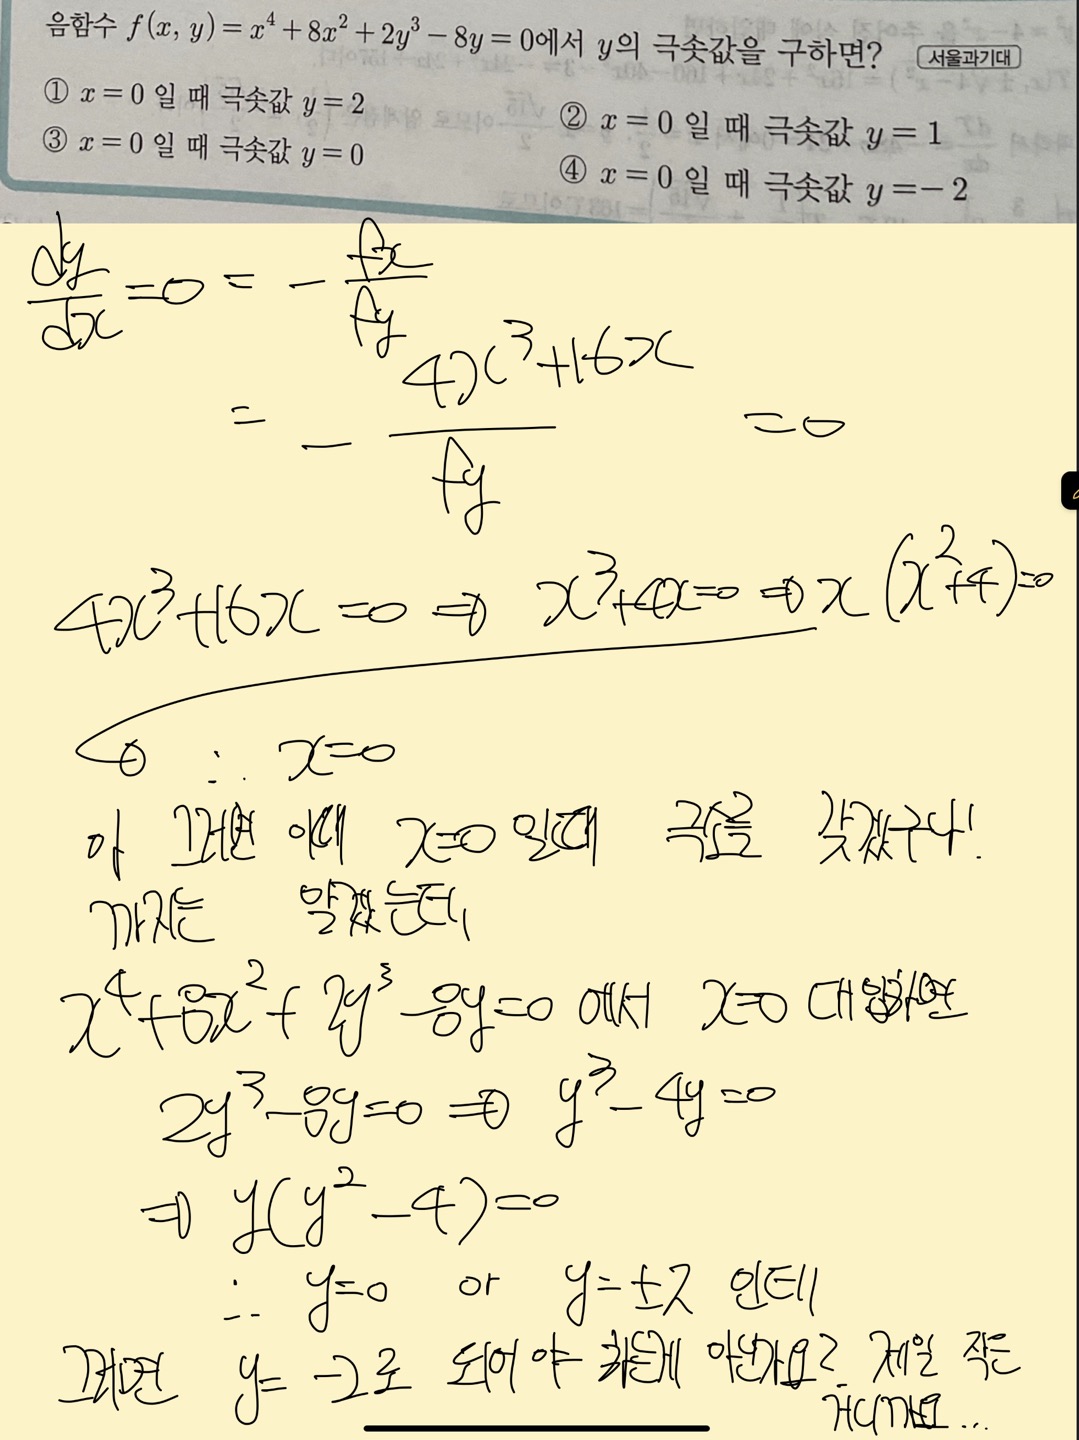 음함수 f(x, y) = x⁴ + 8x² + 2y³ − 8y = 0에서 y의 극솟값을 구하면? 서울과기대
① x = 0 일 때 극솟값 y = 2
② x = 0 일 때 극솟값 y = 1
③ x = 0 일 때 극솟값 y = 0
④ x = 0 일 때 극솟값 y = − 2
dy/dx = 0 = − fx/fy
= − (4x³+16x)/fy = 0
4x³+16x = 0 ⇒ x³+4x=0 ⇒ x(x²+4)=0
∴ x=0
아 그러면 이때 x=0 일때 극소를 갖겠구나!
까지는 알겠는데,
x⁴+8x²+2y³-8y=0 에서 x=0 대입하면
2y³-8y=0 ⇒ y³-4y=0
⇒ y(y²-4)=0
∴ y=0 or y=±2 인데
그러면 y= -2로 되어야 하는게 아닌가요? 제일 작은
거니까요...